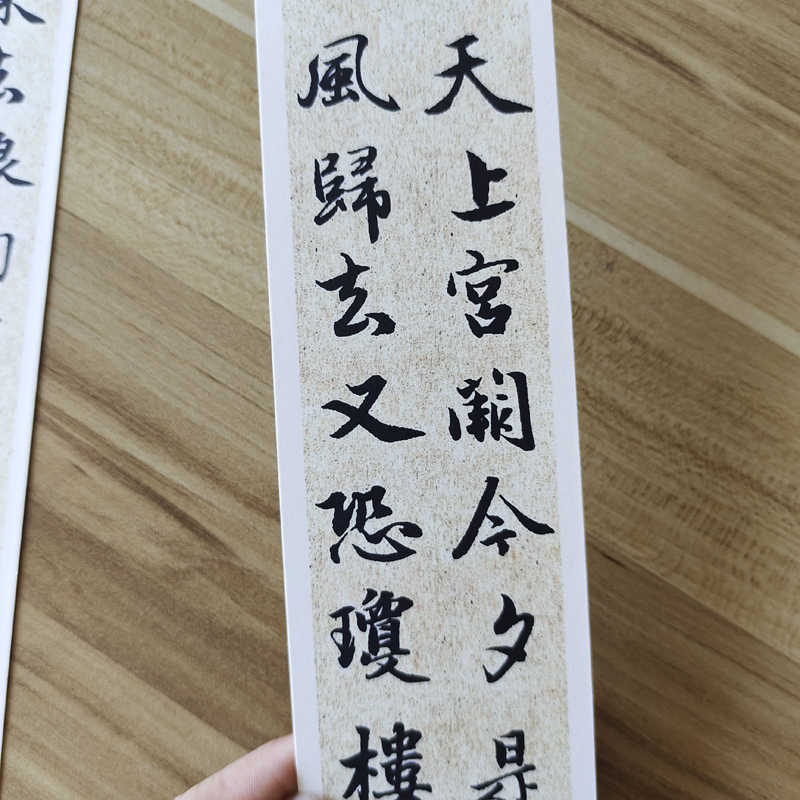 天上宮闕今夕是
風歸去又恐瓊樓